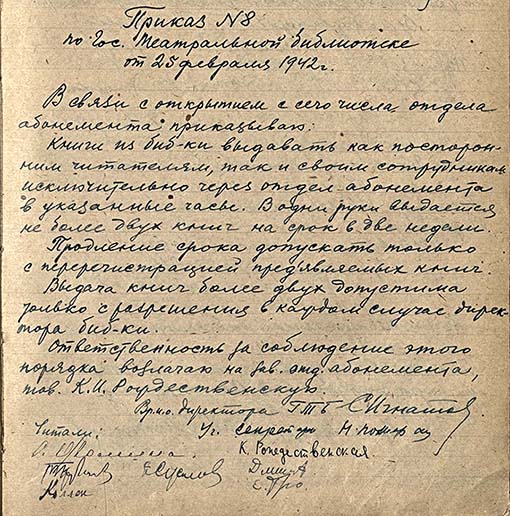 Приказ N 8
по Гос. Театральной библиотеке
от 25 февраля 1942 г.
В связи с открытием с сего числа отдела
абонемента приказываю:
Книги из биб-ки выдавать как посторон-
ним читателям, так и своим сотрудникам
исключительно через отдел абонемента
в указанные часы. В одни руки выдается
не более двух книг на срок в две недели.
Продление срока допускать только
с перерегистрацией предъявляемых книг.
Выдача книг более двух допустима
только с разрешения в каждом случае дирек-
тора биб-ки.
Ответственность за соблюдение этого
порядка возлагаю на зав. отд. абонемента,
тов. К.И. Рождественскую.
Вр.и.о. директора ГТБ С Игнатов
Читали: Уч. секретарь
К. Рождественская
Е Суслов